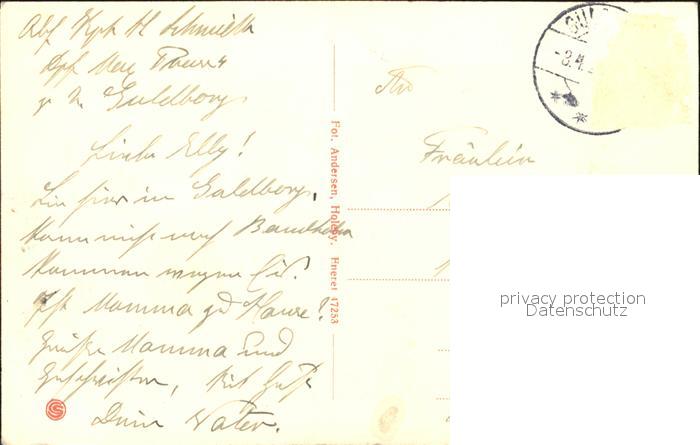 Abs. Kpt. H. Schmidt
z. Z. Guldborg
Liebe Elly!
Bin hier in Guldborg,
kann nicht nach Bandholm
kommen wegen Eis.
Ist Mamma zu Hause?
Grüße Mamma und
Geschwister, Mit Gruß
Dein Vater.
Fot. Andersen, Holeby. Eneret 47253
An
Fräulein
privacy protection
Datenschutz